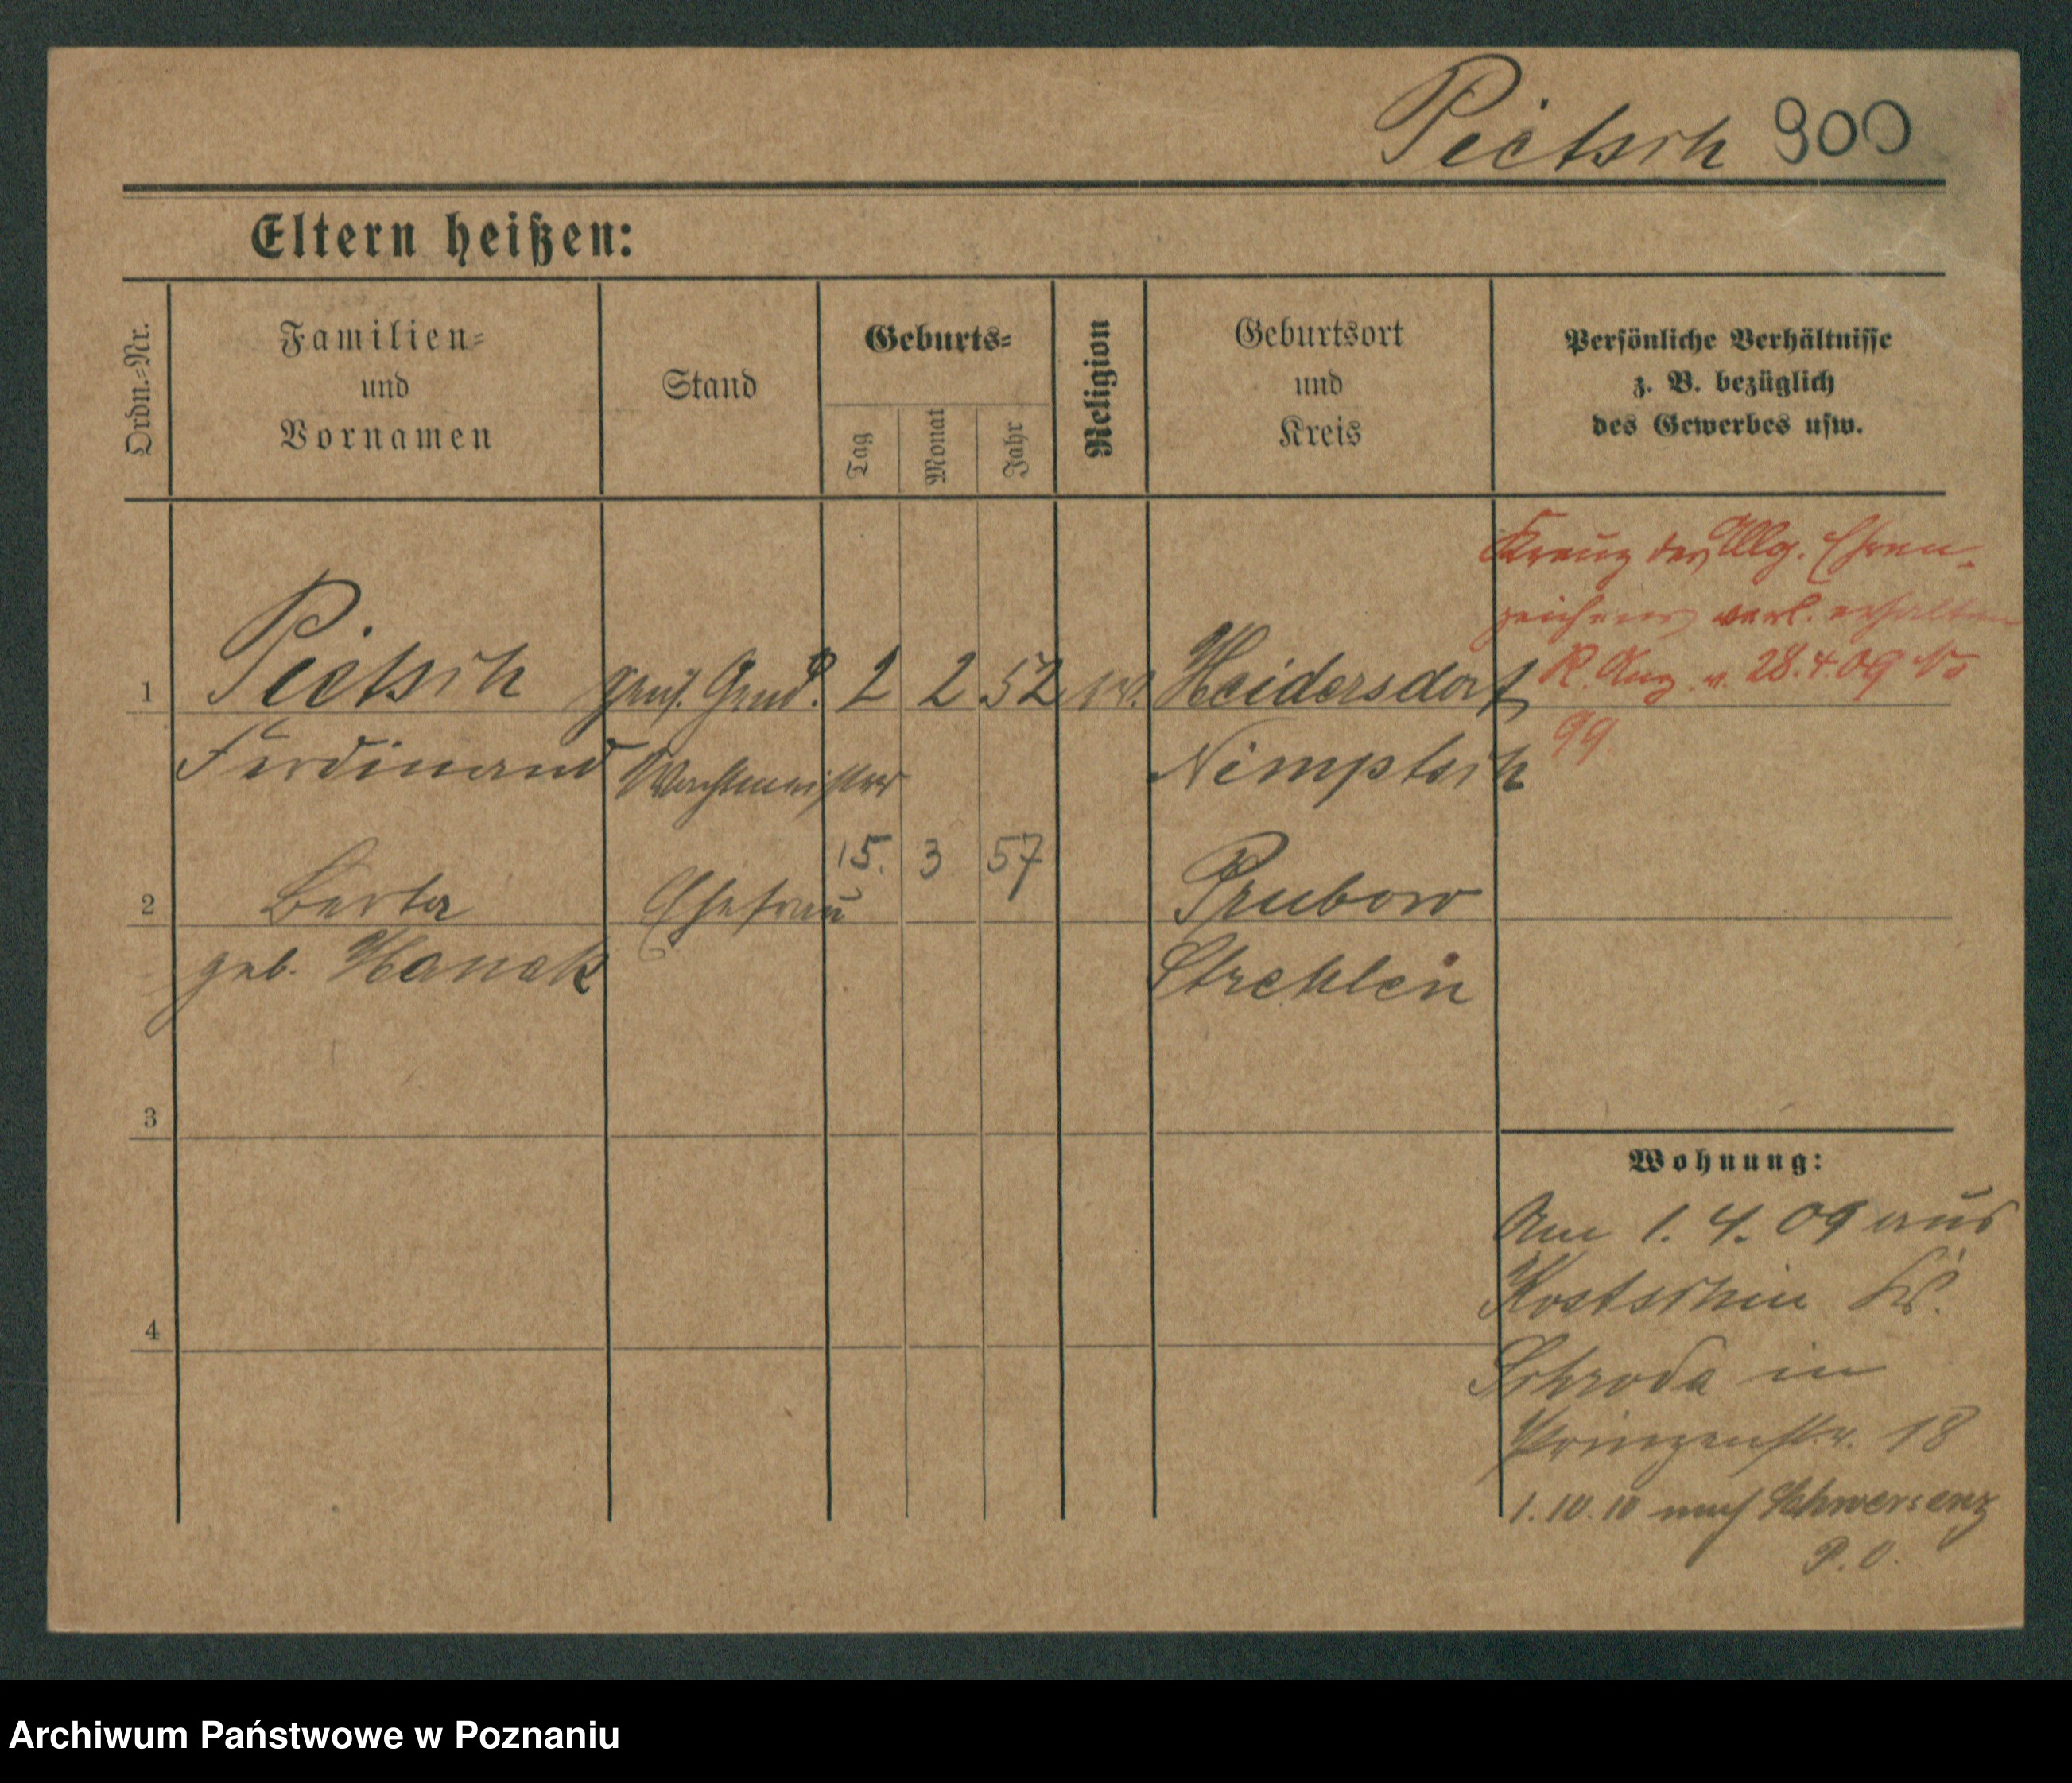 Pietsch 900
Eltern heißen:
Ordn.=Nr.
Familien=
und
Vornamen
Stand
Geburts=
Tag
Monat
Jahr
Religion
Geburtsort
und
Kreis
Persönliche Verhältnisse
z. B. bezüglich
des Gewerbes usw.
Kreuz des Allg. Ehren-
zeichens verl. erhalten
R. Anz. v. 28.4.09 No
99
1 Pietsch pens. Gend. 2 2 52 Heidersdorf
Ferdinand Wachtmeister Nimptsch
2 Berta Ehefrau 15. 3 57 Prubow
geb. Hanak Strehlen
3
4
Wohnung:
Am 1.4.09 aus
Kostschin Kr.
Schroda in
Prinzenstr. 18
1.10.10 nach Schwersenz
P. O.
Archiwum Państwowe w Poznaniu